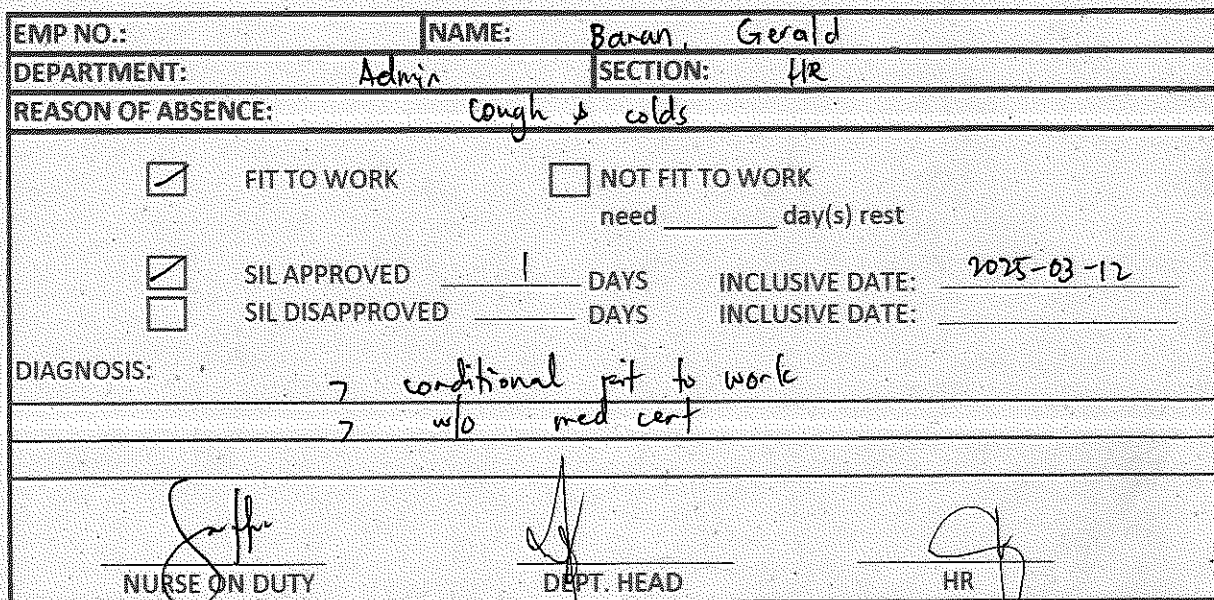 EMP NO.: NAME: Baran, Gerald
DEPARTMENT: Admin SECTION: HR
REASON OF ABSENCE: cough & colds
FIT TO WORK NOT FIT TO WORK
need ______ day(s) rest
SIL APPROVED 1 DAYS INCLUSIVE DATE: 2025-03-12
SIL DISAPPROVED ______ DAYS INCLUSIVE DATE: ______
DIAGNOSIS: > conditional fit to work
> w/o med cert
NURSE ON DUTY DEPT. HEAD HR